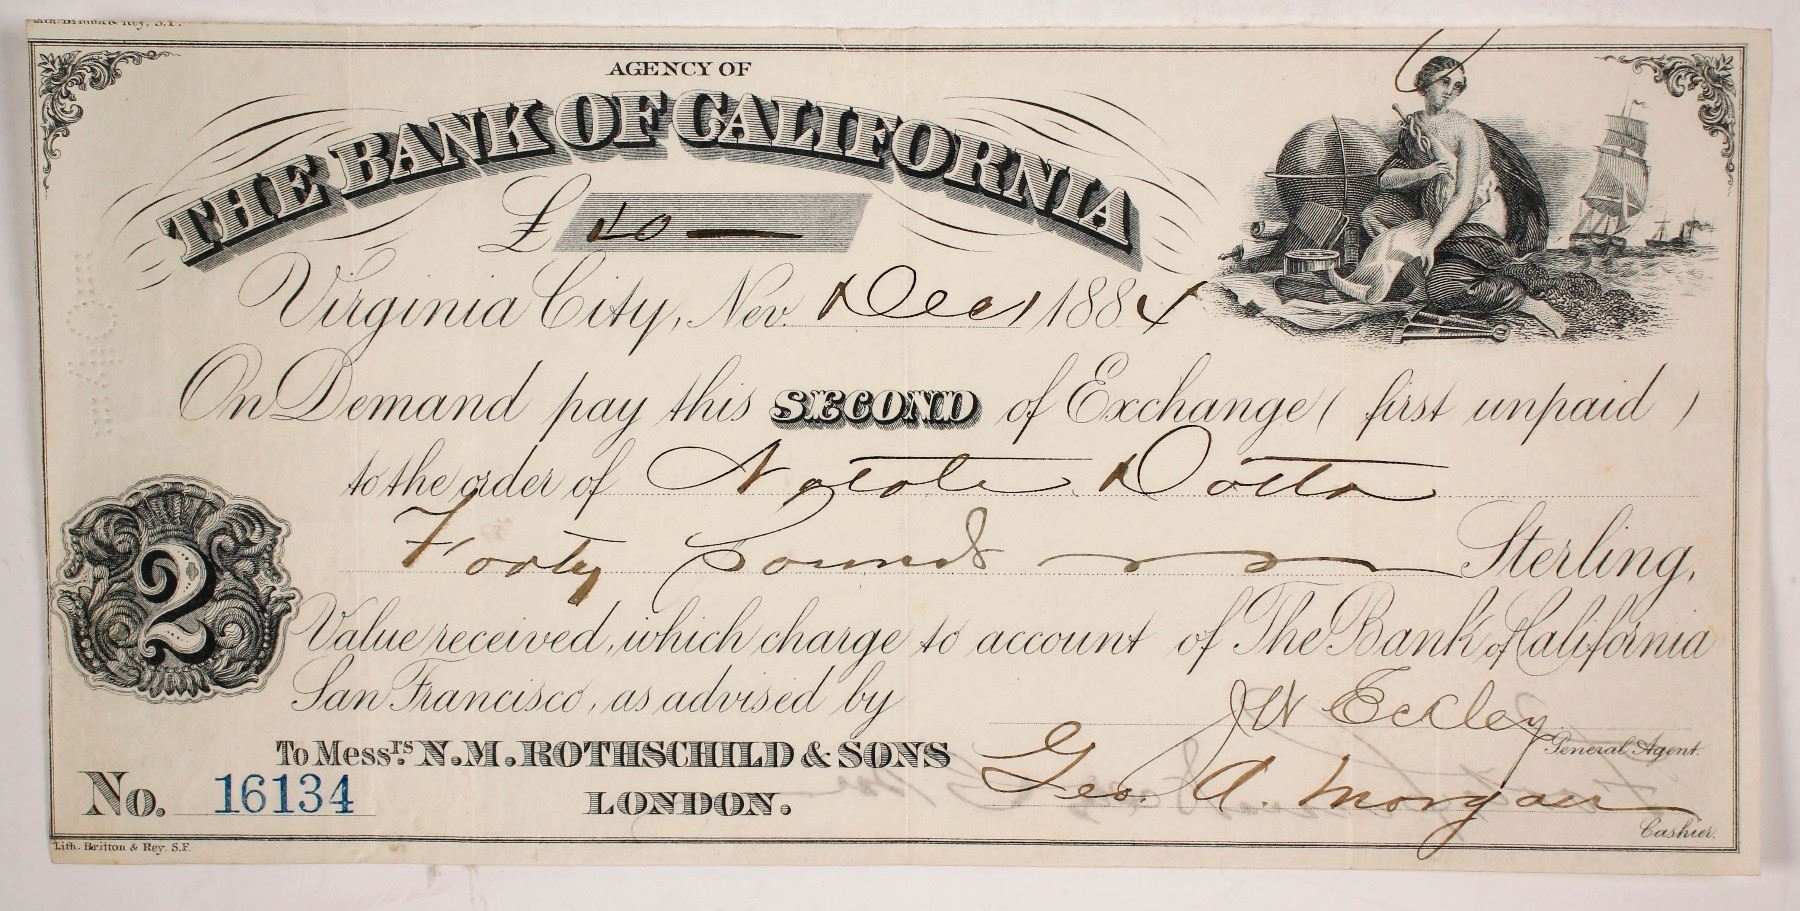 AGENCY OF
THE BANK OF CALIFORNIA
£ 40
Virginia City, Nev. Dec 1 1884
On Demand pay this SECOND of Exchange (first unpaid)
to the order of Natale Dotta
Forty Pounds Sterling,
Value received, which charge to account of The Bank of California
San Francisco, as advised by
JW Eckley
General Agent.
To Messrs. N. M. ROTHSCHILD & SONS
LONDON.
Geo. A. Morgan
Cashier.
No. 16134
2
Lith. Britton & Rey. S.F.